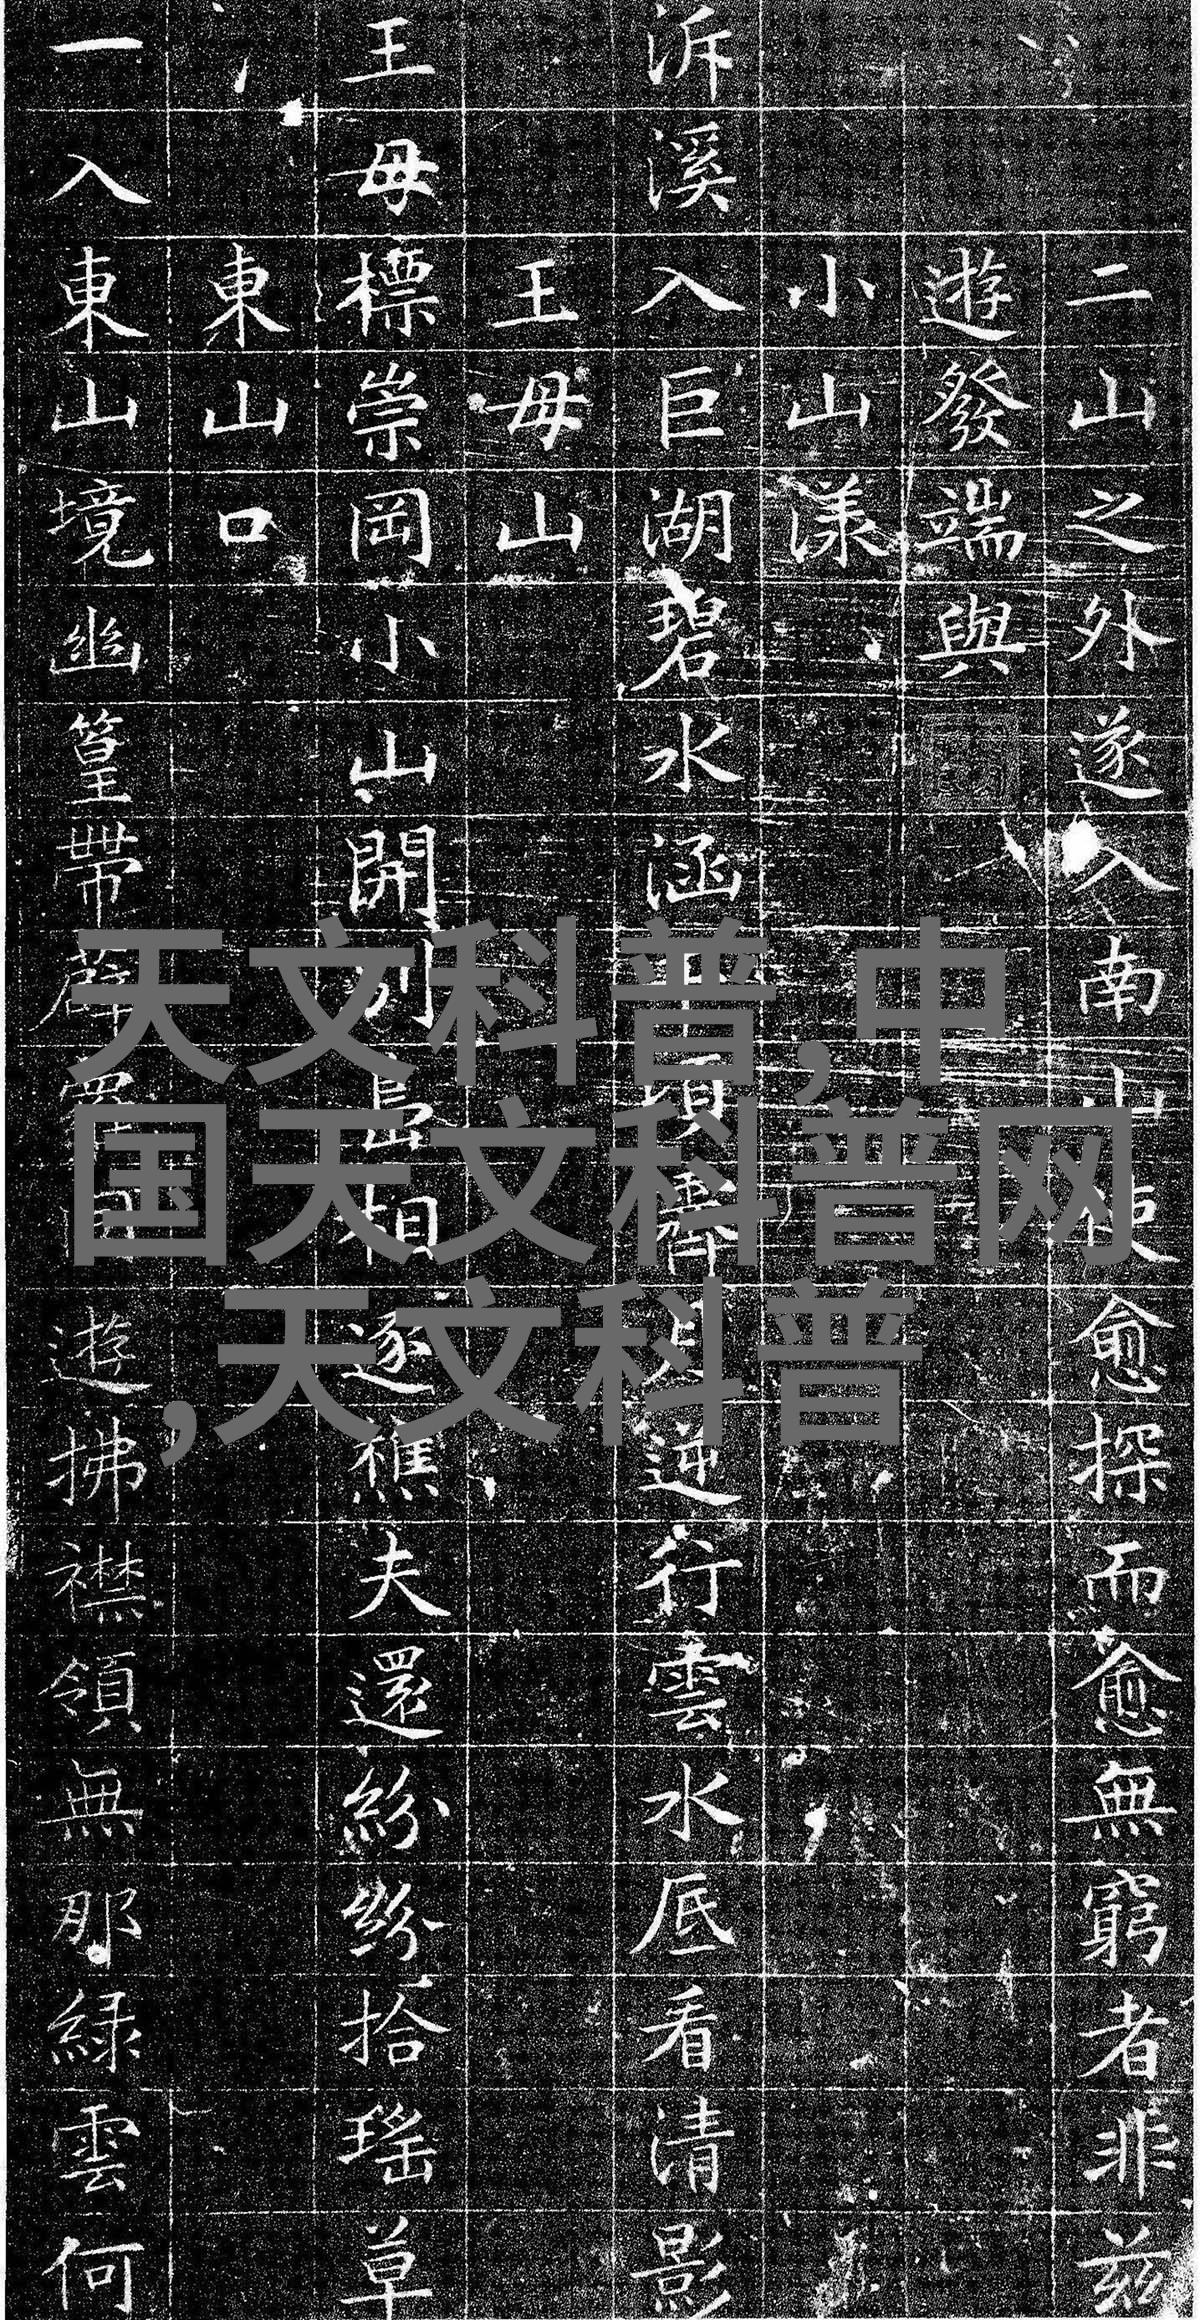 二山之外遂入南山愈探而愈無窮者非茲
遊發端與
小山漾
泝溪入巨湖碧水涵頃霽月逆行雲水底看清影
王母山
王母標崇岡小山開別島相逐樵夫還紛紛拾瑤草
東山口
一入東山境幽篁帶薜遊拂襟領無那綠雲何
天文科普,中
国天文科普网
,天文科普